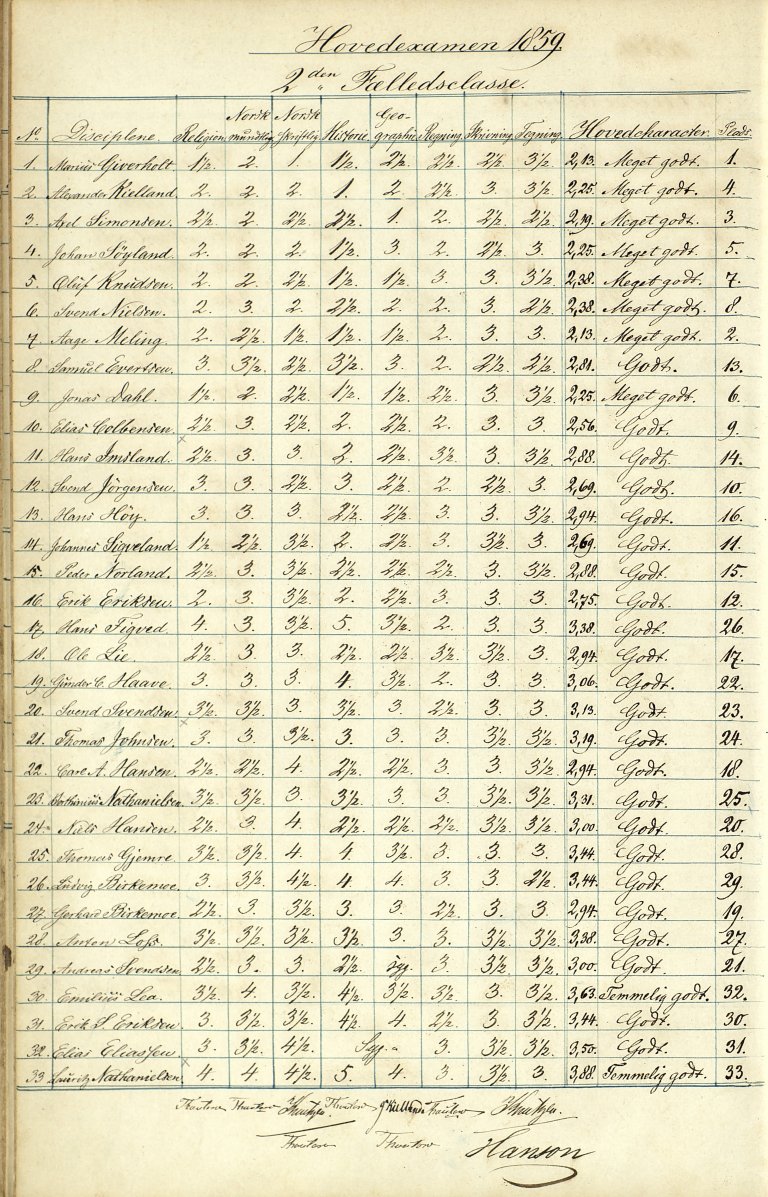 Hovedexamen 1859
2den Fælledsclasse.
No. Disciplene Religion Norsk mundtlig Norsk skriftlig Historie Geographie Regning Skrivning Tegning Hovedcharacter. Plads.
1. Marius Giverholt. 1½ 2. 1. 1½. 2½. 2½. 2½ 3½ 2,13. Meget godt. 1.
2. Alexander Kielland. 2. 2. 2. 1. 2. 2½. 3. 3½. 2,25. Meget godt. 4.
3. Axel Simonsen. 2½ 2. 2½. 2½. 1. 2. 2½. 2½. 2,19. Meget godt. 3.
4. Johan Söyland. 2. 2. 2. 1½ 3. 2. 2½ 3. 2,25. Meget godt. 5.
5. Oluf Knudsen. 2. 2. 2½ 1½. 1½. 3. 3. 3½. 2,38. Meget godt. 7.
6. Svend Nielsen. 2. 3. 2. 2½. 2. 2. 3. 2½. 2,38. Meget godt. 8.
7. Aage Meling. 2. 2½ 1½. 1½. 1½. 2. 3. 3. 2,13. Meget godt. 2.
8. Samuel Evertsen. 3. 3½. 2½. 3½. 3. 2. 2½. 2½. 2,81. Godt. 13.
9. Jonas Dahl. 1½. 2. 2½. 1½. 1½. 2½. 3. 3½. 2,25. Meget godt. 6.
10. Elias Colbensen. 2½. 3. 2½. 2. 2½. 2. 3. 3. 2,56. Godt. 9.
11. Hans Imsland. 2½. 3. 3. 2. 2½. 3½. 3. 3½. 2,88. Godt. 14.
12. Svend Jörgensen. 3. 3. 2½. 3. 2½. 2. 2½. 3. 2,69. Godt. 10.
13. Hans Höy. 3. 3. 3. 2½. 2½. 3. 3. 3½. 2,94. Godt. 16.
14. Johannes Siqveland. 1½. 2½. 3½. 2. 2½. 3. 3½. 3. 2,69. Godt. 11.
15. Peder Norland. 2½. 3. 3½. 2½. 2½. 2½. 3. 3½. 2,88. Godt. 15.
16. Erik Eriksen. 2. 3. 3½. 2. 2½. 3. 3. 3. 2,75. Godt. 12.
17. Hans Tigved. 4. 3. 3½. 5. 3½. 2. 3. 3. 3,38. Godt. 26.
18. Ole Lie. 2½. 3. 3. 2½. 2½. 3½. 3½. 3. 2,94. Godt. 17.
19. Gunder C. Haave. 3. 3. 3. 4. 3½. 2. 3. 3. 3,06. Godt. 22.
20. Svend Svendsen. 3½. 3½. 3. 3½. 3. 2½. 3. 3. 3,13. Godt. 23.
21. Thomas Johnsen. 3. 3. 3½. 3. 3. 3. 3½. 3½. 3,19. Godt. 24.
22. Carl A. Hansen. 2½. 2½. 4. 2½. 2½. 3. 3. 3½. 2,94. Godt. 18.
23. Nathanielsen. 3½. 3½. 3. 3½. 3. 3. 3½. 3½. 3,31. Godt. 25.
24. Niels Hansen. 2½. 3. 4. 2½. 2½. 2½. 3½. 3½. 3,00. Godt. 20.
25. Thomas Gjemre. 3½. 3½. 4. 4. 3½. 3. 3. 3. 3,44. Godt. 28.
26. Ludvig Birkemoe. 3. 3½. 4½. 4. 4. 3. 3. 2½. 3,44. Godt. 29.
27. Gerhard Birkemoe. 2½. 3. 3½. 3. 3. 2½. 3. 3. 2,94. Godt. 19.
28. Anton Loss. 3½. 3½. 3½. 3½. 3. 3. 3½. 3½. 3,38. Godt. 27.
29. Andreas Svendsen. 2½. 3. 3. 2½. syg. 3. 3½. 3½. 3,00. Godt. 21.
30. Emilius Lea. 3½. 4. 3½. 4½. 3½. 3½. 3. 3½. 3,63. Temmelig godt. 32.
31. Erik S. Eriksen. 3. 3½. 3½. 4½. 4. 2½. 3. 3½. 3,44. Godt. 30.
32. Elias Eliassen. 3. 3½. 4½. Syg. 3. 3½. 3½. 3,50. Godt. 31.
33. Lauritz Nathanielsen. 4. 4. 4½. 5. 4. 3. 3½. 3. 3,88. Temmelig godt. 33.
Hanson